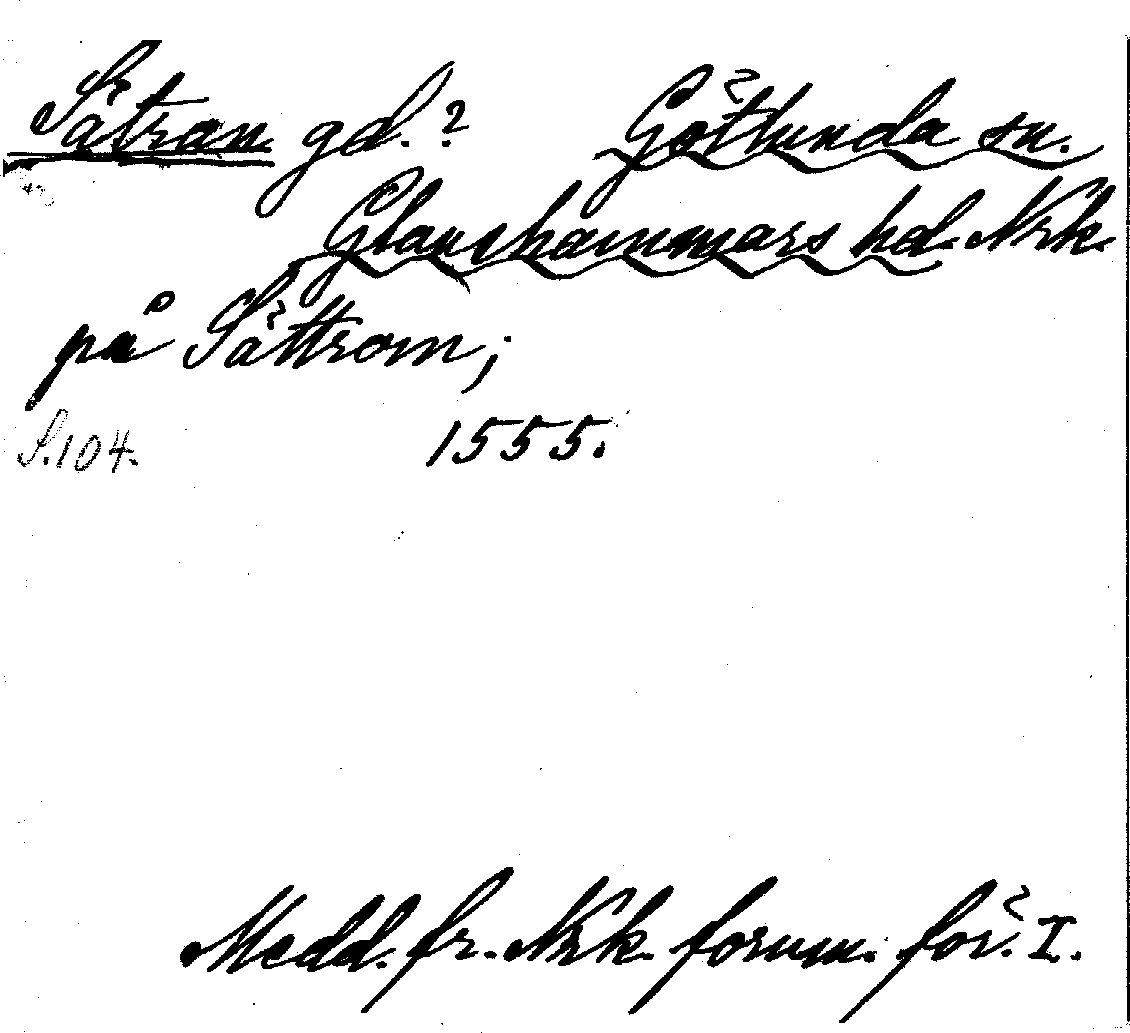 Sätran gd.? Götlunda sn.
Glanshammars hd. Nrk.
på Sättrom;
S.104. 1555.
Medd. fr. Nrk. fornm. för. I.